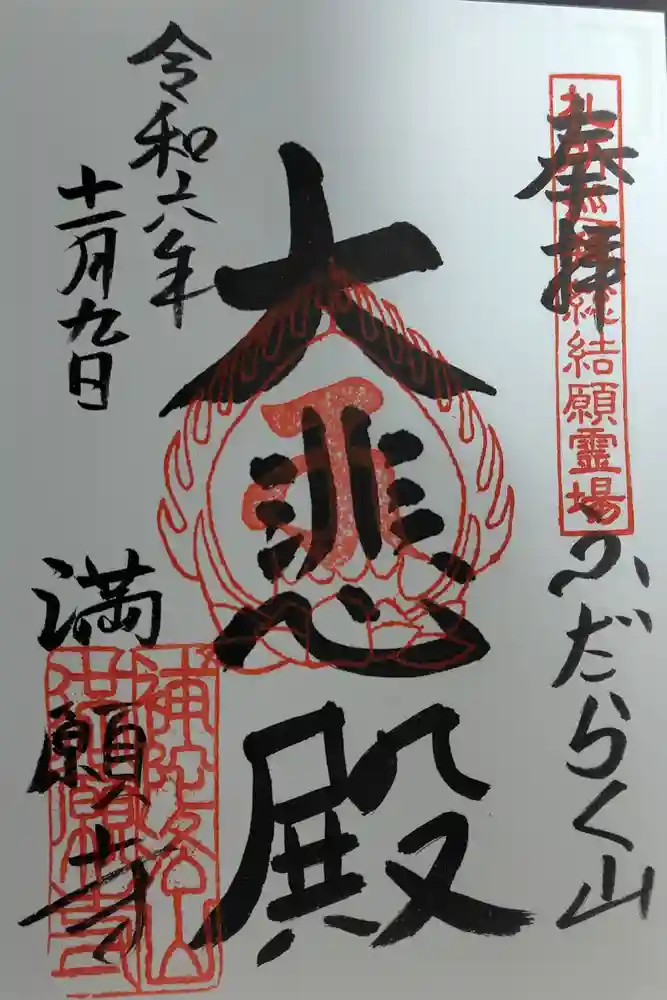 奉拝
総結願霊場
ふだらく山
大悲殿
令和六年
十一月九日
満願寺
補陀洛山
満願寺